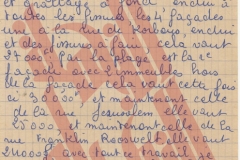 et grattage à fond, enduit à
toutes les fissures les 4 façades
une la rue de Korbous, enduit
et des fissures à faire cela vaut
27000. Par la plage est la 1e
façade avec 2 immeubles hors
de la façade cela vaut cette fois
ci 30000 et maintenant celle
de la rue Jérusalem elle vaut
25000 et maintenant celle de la
rue Franklin Roosvelt elle vaut
24000 avec tout ce travail